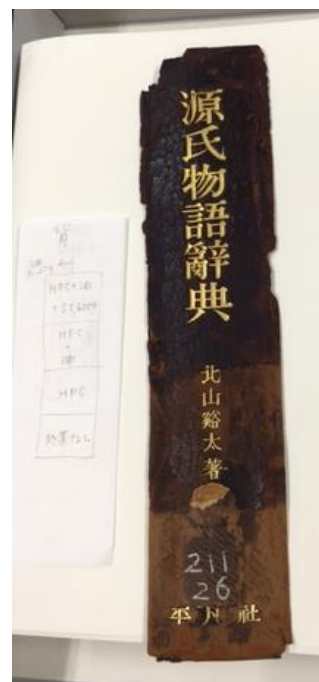 源氏物語辭典
北山谿太著
211
26
平凡社
背
HPC
HPC
処置なし